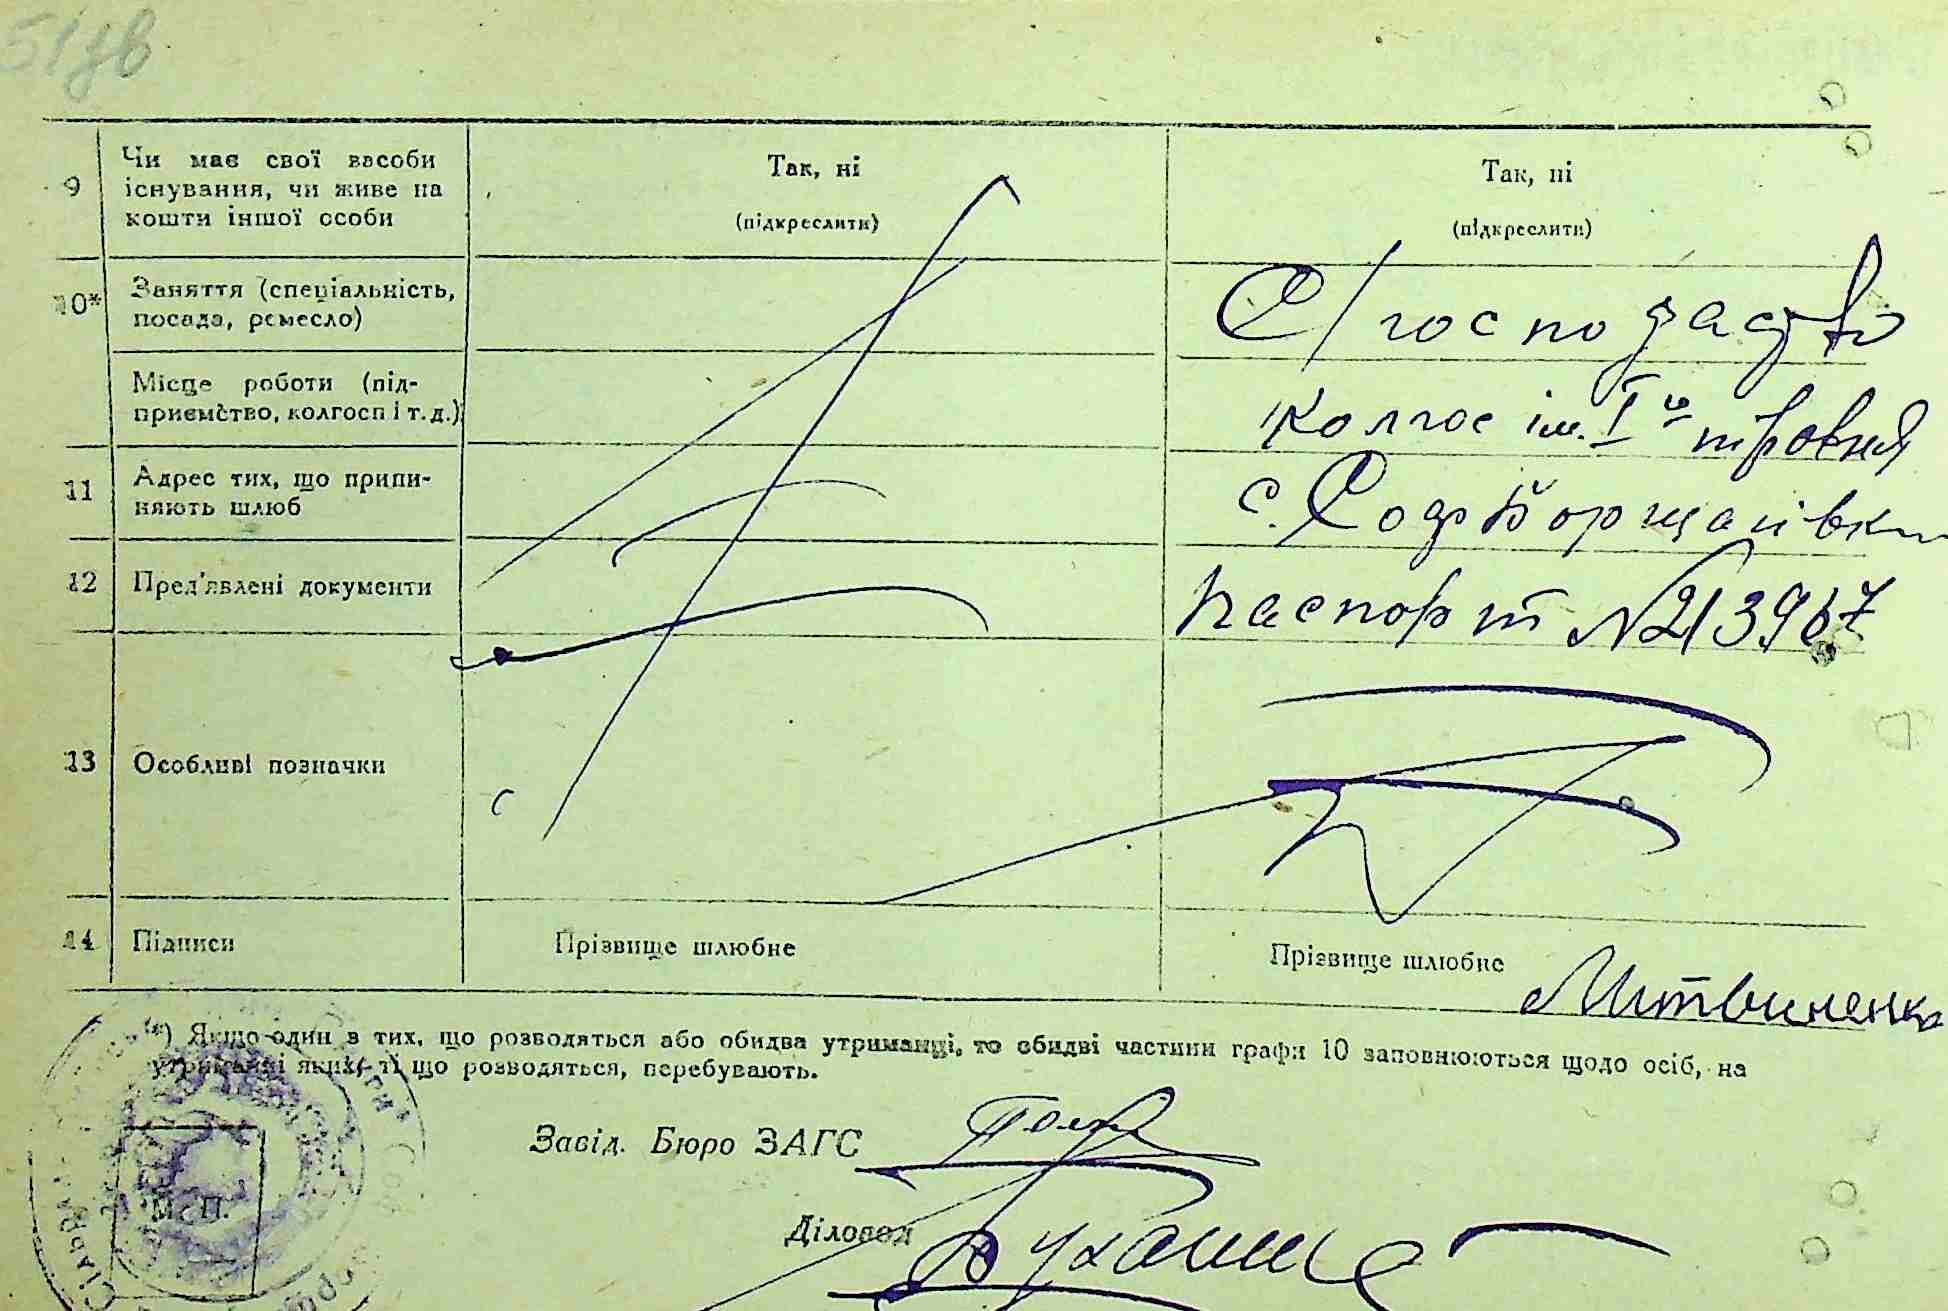 51зв
9 Чи має свої засоби існування, чи живе на кошти іншої особи
Так, ні
(підкреслити)
Так, ні
(підкреслити)
10* Заняття (спеціальність, посада, ремесло)
С/господарство
Місце роботи (підприємство, колгосп і т. д.)
Колгос ім. I го травня
11 Адрес тих, що припиняють шлюб
с. Соф Борщагівка
12 Пред'явлені документи
Паспорт №213967
13 Особливі позначки
14 Підписи
Прізвище шлюбне
Прізвище шлюбне Литвиненко
*) Якщо один з тих, що розводяться або обидва утриманці, то обидві частини графи 10 заповнюються щодо осіб, на
утриманні яких ті що розводяться, перебувають.
Завід. Бюро ЗАГС
Діловод
М. П.